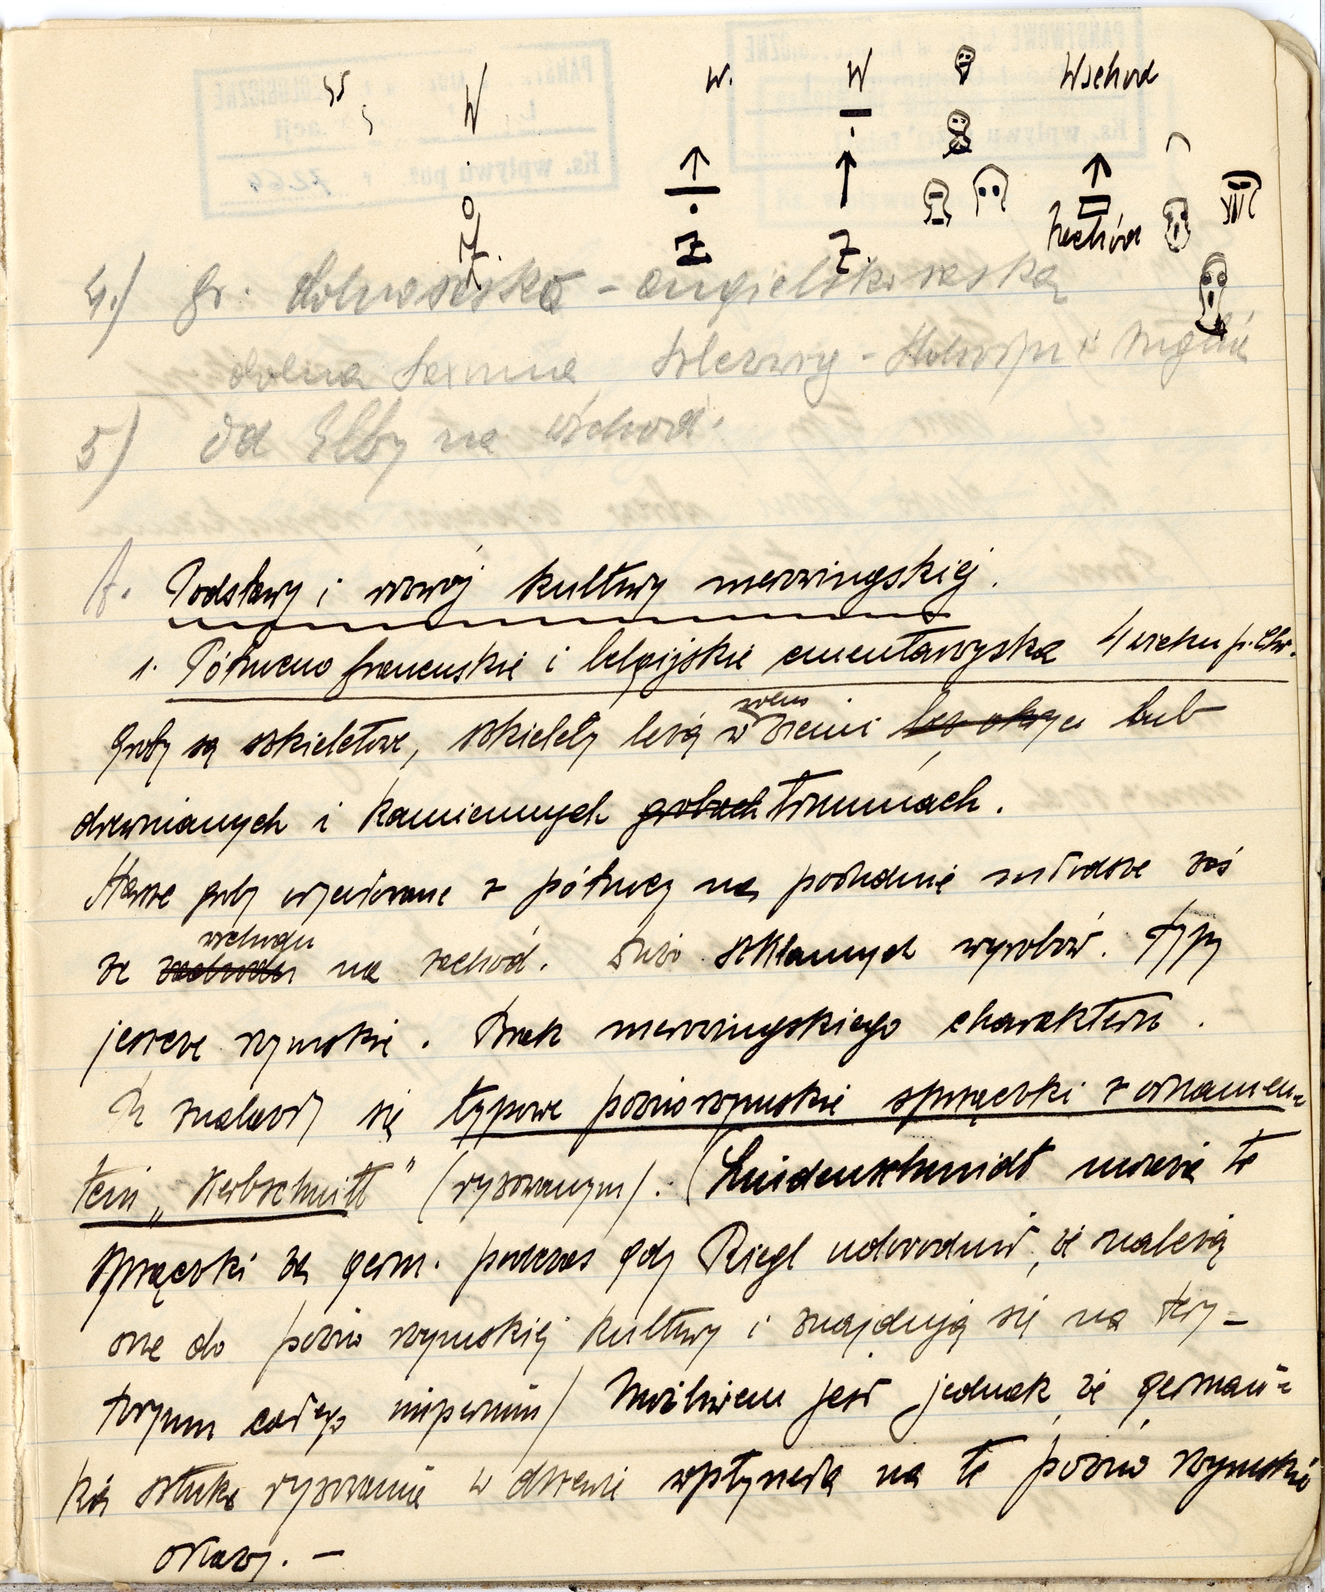 W w. W Wschód
Z. Z Z. Zachód
4.) gr. dolnosaska - angielskosaska
dolna Saxonia, Szlezwig - Holsztyn i Anglia
5) Od Elby na wschód.
A. Podstawy i rozwój kultury merowingskiej.
1. Północno francuskie i belgijskie cmentarzyska 4 wieku p. Chr.
Groby są szkieletowe, szkielety leżą w ziemi lub
drewnianych i kamiennych grobach trumnach.
Starsze groby orjentowane z północy na południe młodsze zaś
wschodu
ze zachodu na zachód. Dużo szklannych wyrobów. Typy
jeszcze rzymskie. Brak merowingskiego charakteru.
Tu znalazły się typowe poźnorzymskie sprzączki z ornamen-
tem „Kerbschnitt" (rysowanym). (Lindenschmidt uważa te
sprzączki za germ. podczas gdy Riegl udowodnił, że należą
one do poźno rzymskiej kultury i znajdują się na tery-
torjum całego imperium) Możliwem jest jednak że germań-
ska sztuka rysowania w drzewie wpłynęła na te poźno rzymskie
okazy. -